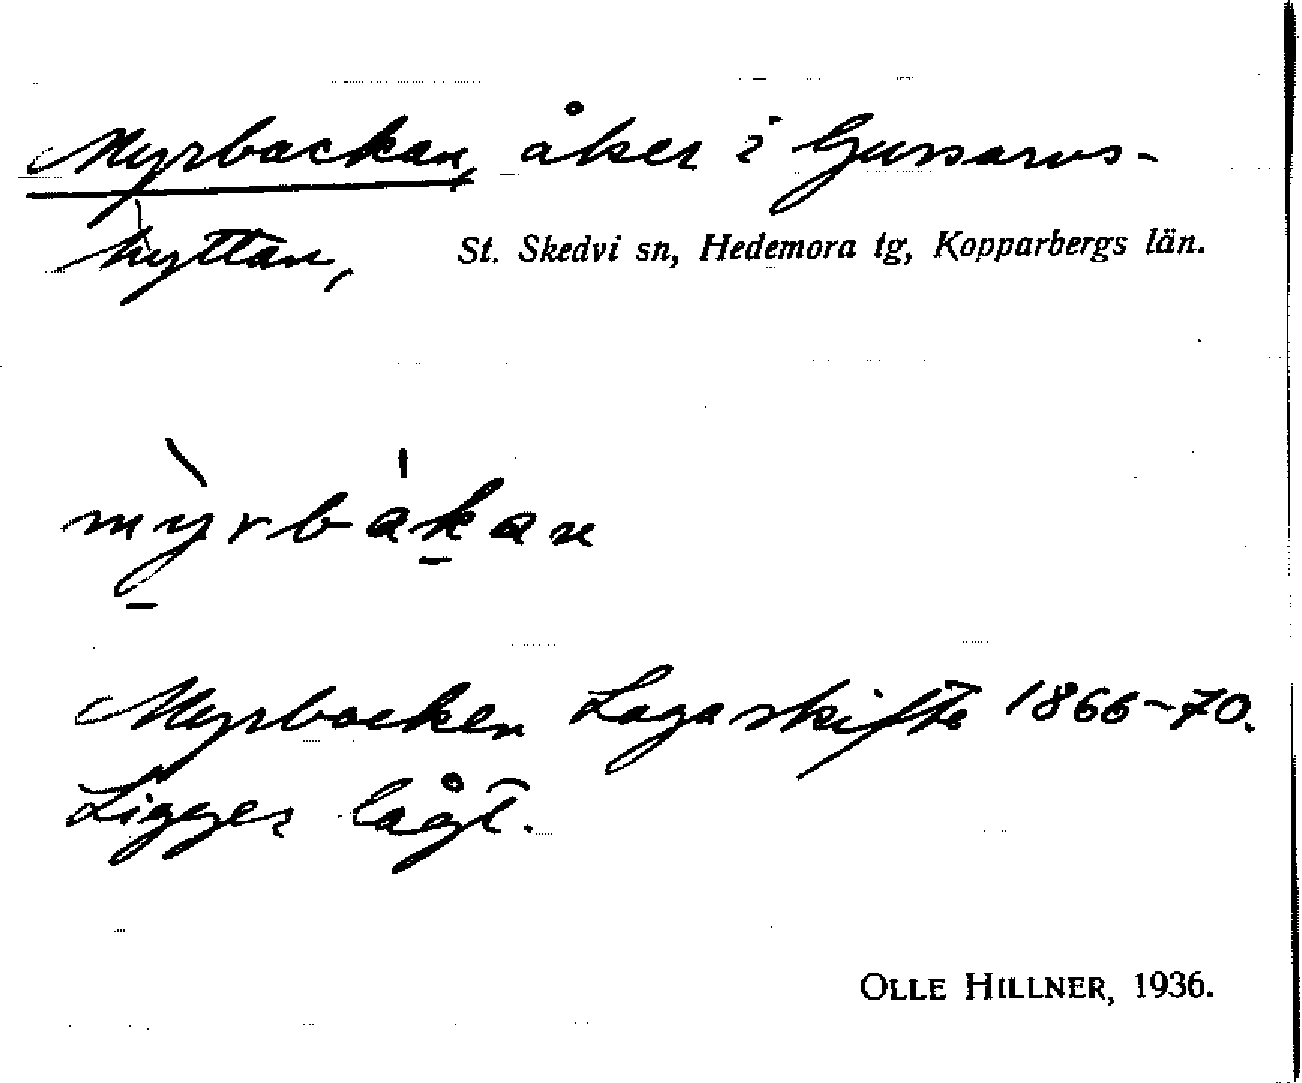 Myrbackan, åker i Gussarvs-
hyttan, St. Skedvi sn, Hedemora tg, Kopparbergs län.
mỳrbák̲an
Myrbacken Laga skifte 1866-70.
Ligger lågt.
OLLE HILLNER, 1936.